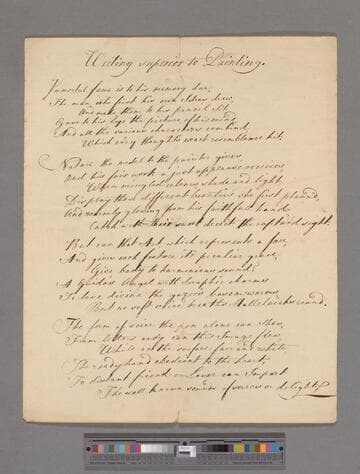 Writing superior to Painting.
Immortal fame is to his memory due,
The man, who first his own Ideas drew,
And made them to his pencil sit
Gave to his Eye the picture of his mind
And all the various characters combin'd,
Which ev'ry thought's exact resemblance hit,
Nature the model to the painter gives
And his fair work a just applause receives
When mingled colours shade and light
Display those different beauties she first plann'd,
And warmly glowing from his faithful hand
Catch with their sweet deceit the raptur'd sight,
But can that Art which represents a face,
And gives each feature its peculiar grace,
Give body to harmonious sound?
A Guido's Angel with Seraphic charms
To love divine the gazers bosom warms
But no soft voice hea the Hallelujahs sound.
The form of voice the pen alone can show,
From Letters only can this Image flow
While o'er the surface fair and white
The ready hand obedient to the heart
To distant friend or Lover can Impart
The well known sounds of sorrow or delight